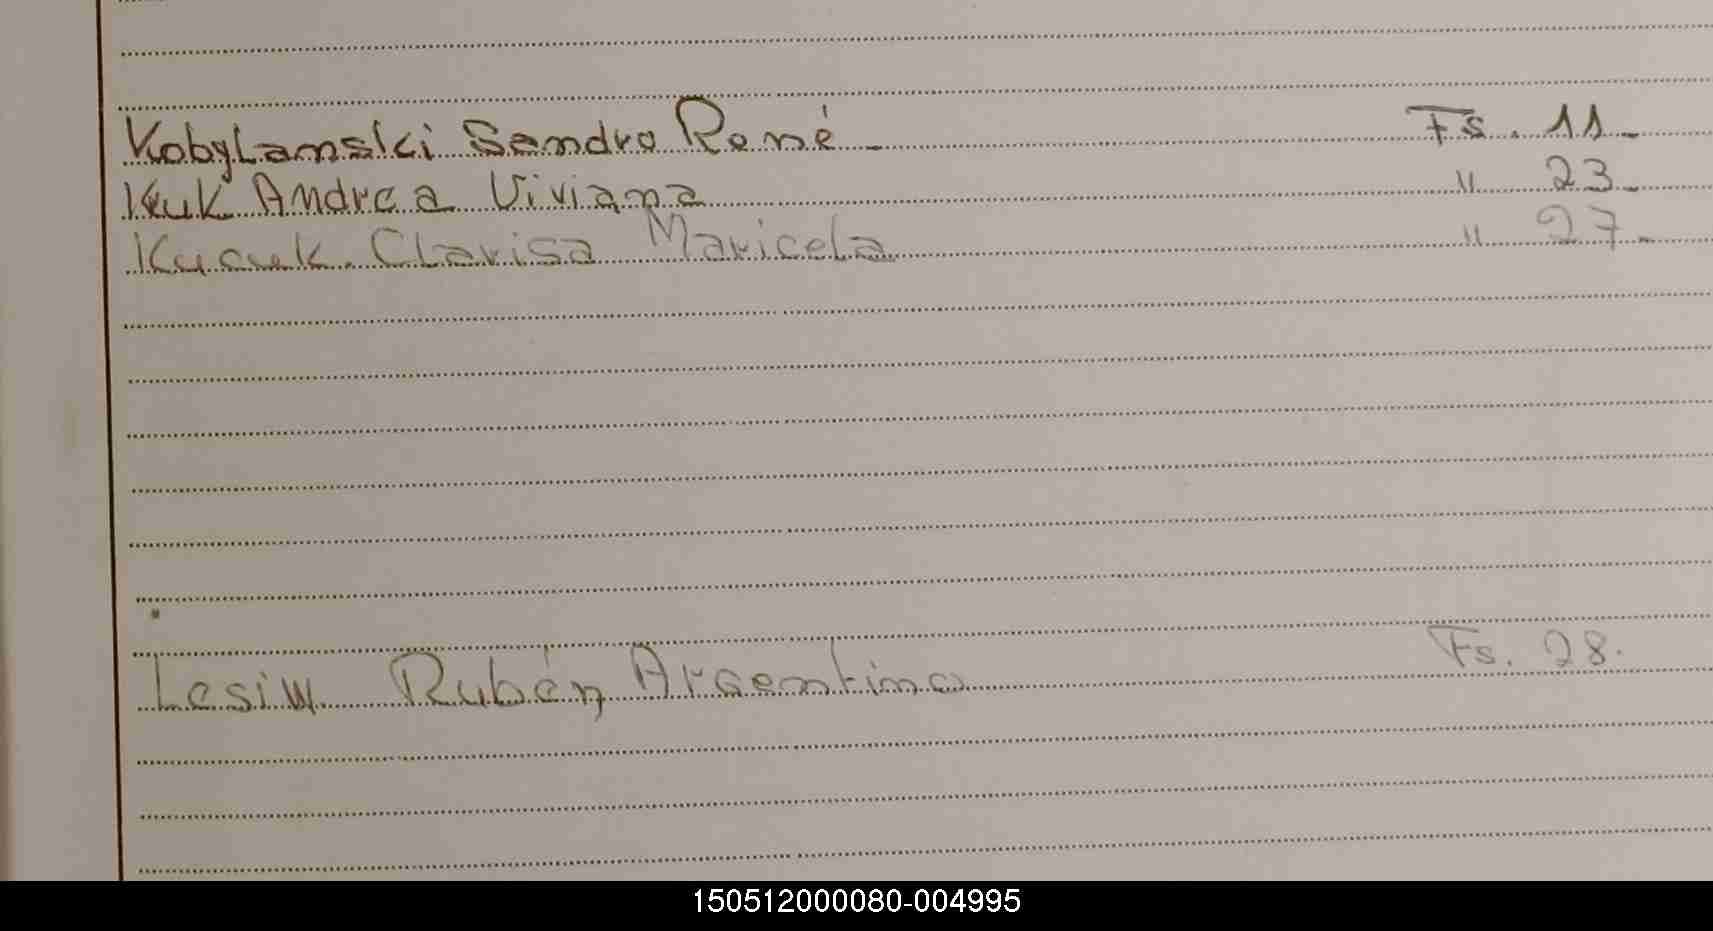 Kobylanski Sandro René - Fs. 11 -
Kuk Andrea Viviana " 23 -
Kucuk Clarisa Maricela " 27 -
Lesiw Rubén Argentino Fs. 28.
150512000080-004995